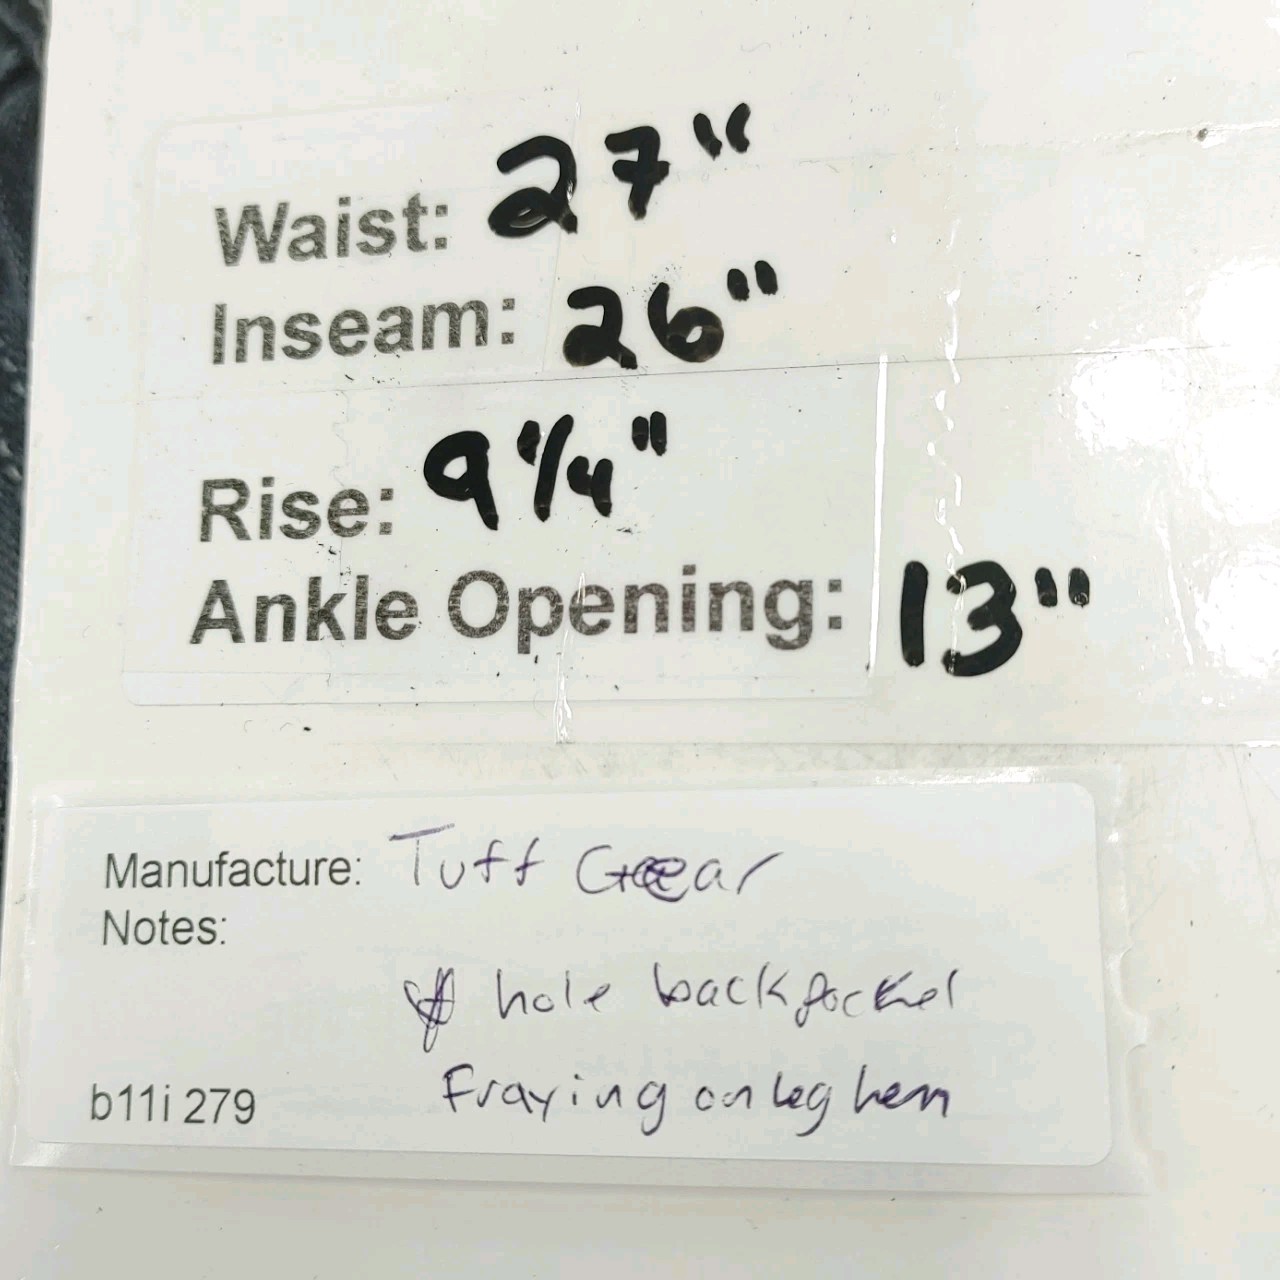 Waist: 27"
Inseam: 26"
Rise: 9 1/4"
Ankle Opening: 13"
Manufacture: Tuff Gear
Notes:
hole back pocket
b11i 279
Fraying on leg hem